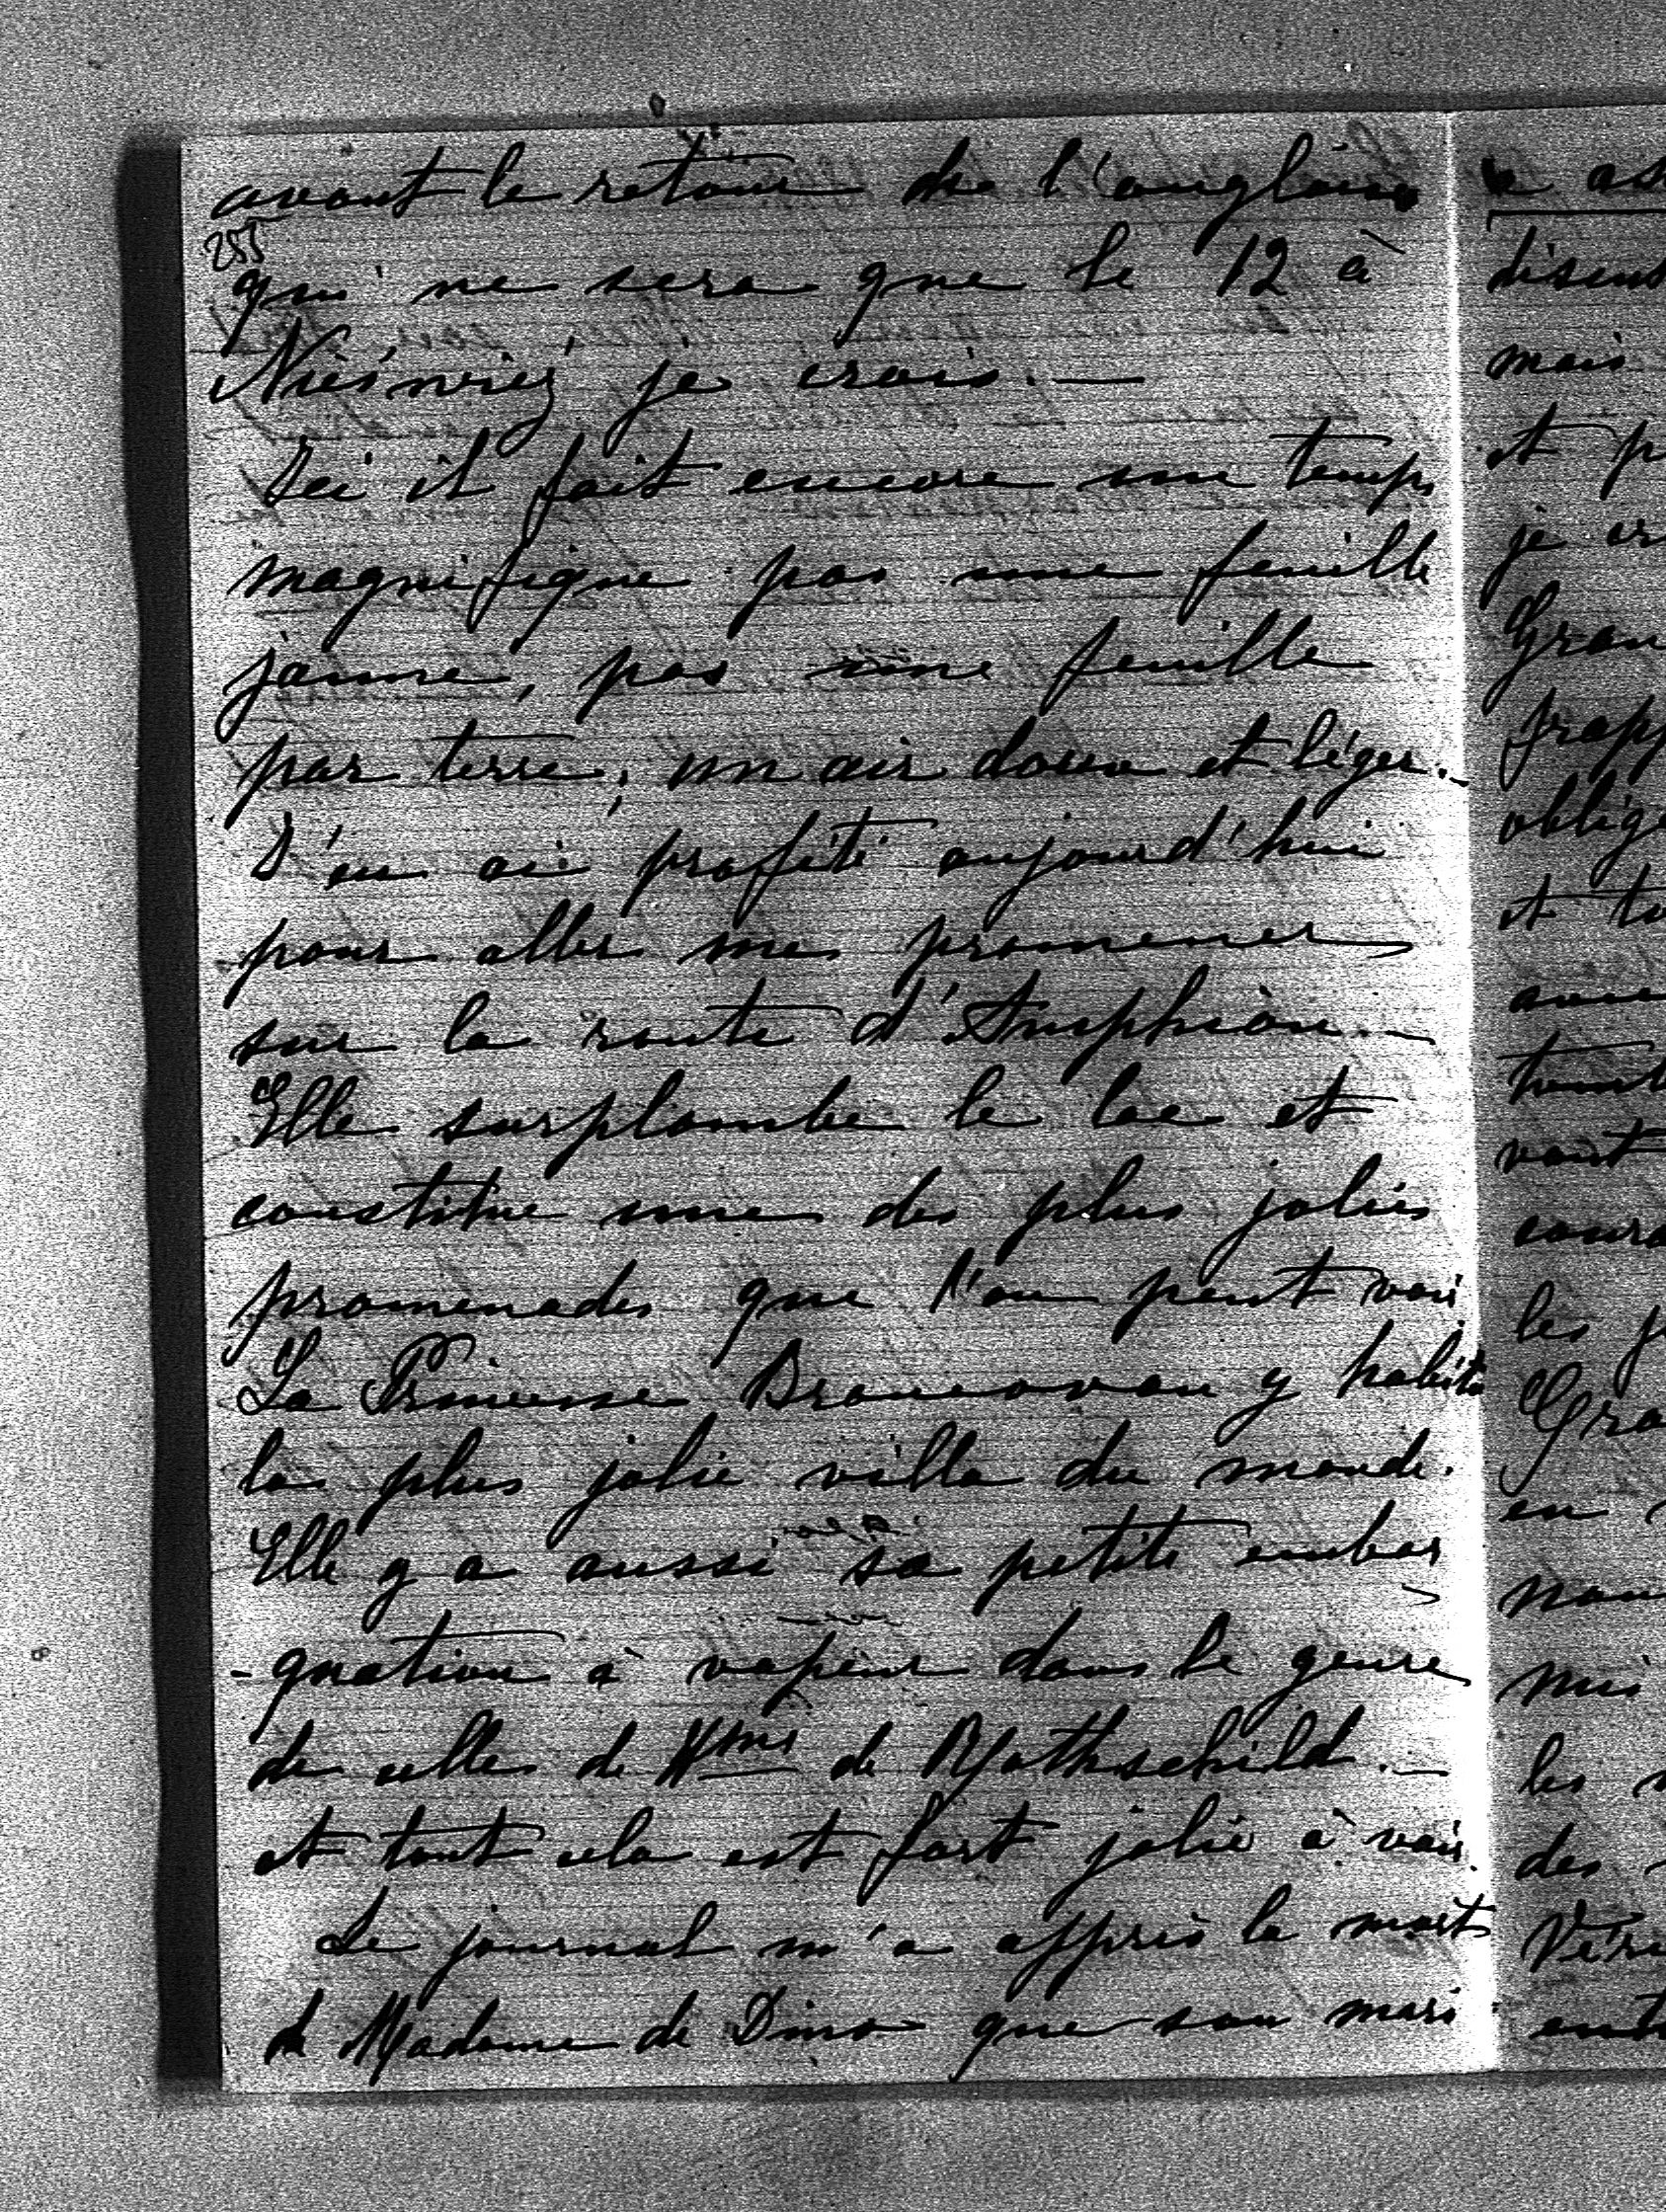 avant le retour de l'anglaise
255
qui ne sera que le 12 à
Nieśwież je crois. —
Ici il fait encore un temps
magnifique pas une feuille
jaune, pas une feuille
par terre; un air doux et léger. —
J'en ai profité aujourd'hui
pour aller me promener
sur la route d'Amphion. —
Elle surplombe le lac et
constitue une des plus jolies
promenades que l'on peut voir
La Princesse Brancovan y habite
la plus jolie villa du monde.
Elle y a aussi sa petite embar
-quation à vapeur dans le genre
de celle de Mme de Rothschild. —
et tout cela est fort jolie à voir.
Le journal m'a appris la mort
de Madame de Dino que son mari
disent
mais
et
je
et
les
en
les
des